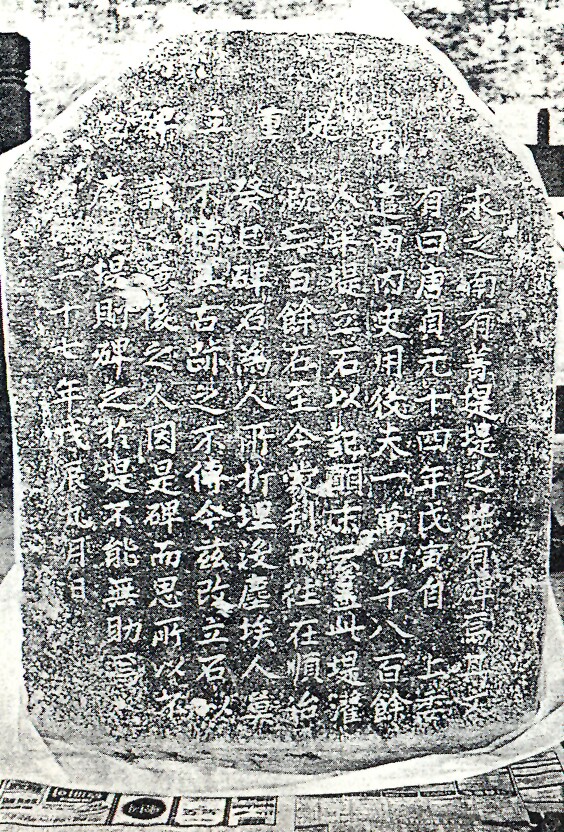 菁堤重立碑
永之南有菁堤堤之地有碑焉其文
有曰唐貞元十四年戊寅自 上委
遣兩內使用役夫一萬四千八百餘
人築堤立石以記顚末云盖此堤灌
漑三百餘石至今蒙利而往在順治
癸巳碑石爲人所折埋沒塵埃人莫
不惜其古跡之不傳今玆改立石以
識之後之人因是碑而思所以不
廢堤則碑之於堤不能無助焉
二十七年戊辰九月日